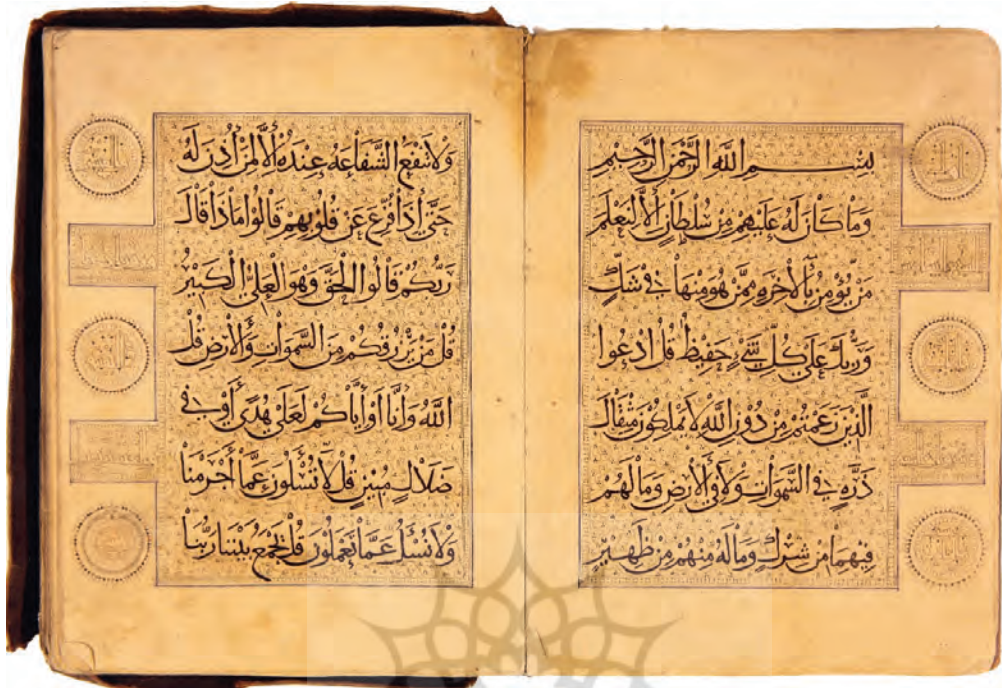 بسم الله الرحمن الرحيم
وَمَا كَانَ لَهُ عَلَيْهِمْ مِنْ سُلْطَانٍ اِلَّا لِنَعْلَمَ
مَنْ يُؤْمِنُ بِالْاٰخِرَهِ مِمَّنْ هُوَ مِنْهَا فِى شَكٍّ
وَرَبُّكَ عَلَى كُلِّ شَىْءٍ حَفِيظٌ قُلِ ادْعُوا
الَّذِينَ زَعَمْتُمْ مِنْ دُونِ اللّٰهِ لَا يَمْلِكُونَ مِثْقَالَ
ذَرَّهٍ فِى السَّمٰوَاتِ وَلَا فِى الْاَرْضِ وَمَا لَهُمْ
فِيهِمَا مِنْ شِرْكٍ وَمَا لَهُ مِنْهُمْ مِنْ ظَهِيرٍ
وَلَا تَنْفَعُ الشَّفَاعَهُ عِنْدَهُ اِلَّا لِمَنْ اَذِنَ لَهُ
حَتَّى اِذَا فُزِّعَ عَنْ قُلُوبِهِمْ قَالُوا مَاذَا قَالَ
رَبُّكُمْ قَالُوا الْحَقَّ وَهُوَ الْعَلِىُّ الْكَبِيْرُ
قُلْ مَنْ يَرْزُقُكُمْ مِنَ السَّمٰوَاتِ وَالْاَرْضِ قُلِ
اللّٰهُ وَاِنَّا اَوْ اِيَّاكُمْ لَعَلَى هُدًى اَوْ فِى
ضَلَالٍ مُبِيْنٍ قُلْ لَا تُسْئَلُونَ عَمَّا اَجْرَمْنَا
وَلَا نُسْئَلُ عَمَّا تَعْمَلُونَ قُلْ يَجْمَعُ بَيْنَنَا رَبُّنَا